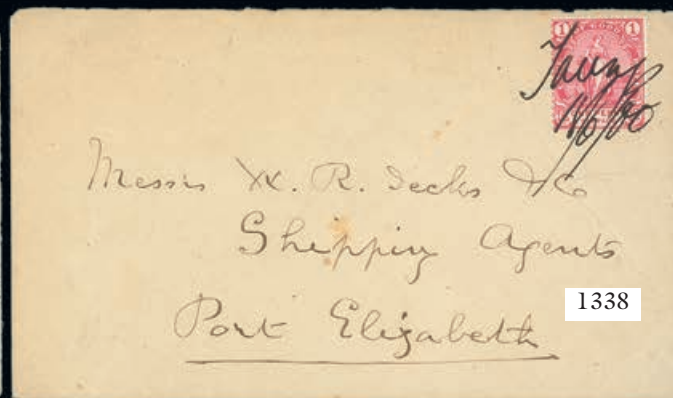 1 1
Taungs
Messrs W. R. Decks & Co
Shipping Agents
Port Elizabeth
1338